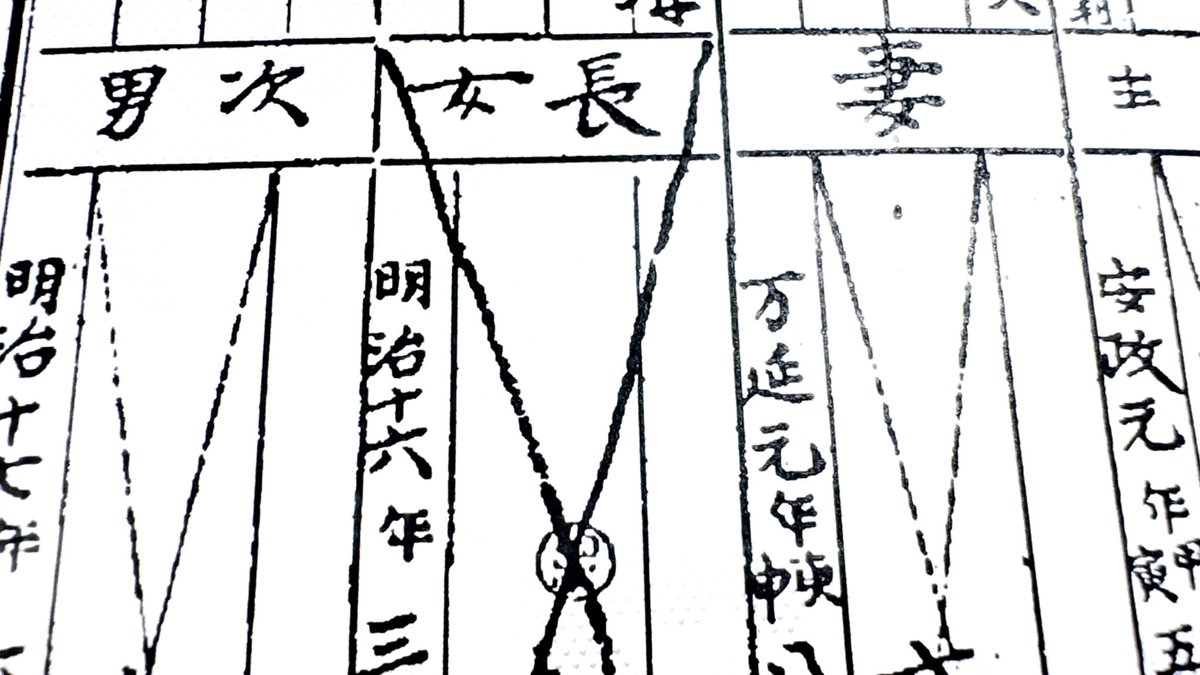 主
妻
長女
次男
安政元年甲寅五
万延元年庚申八
明治十六年三
明治十七年